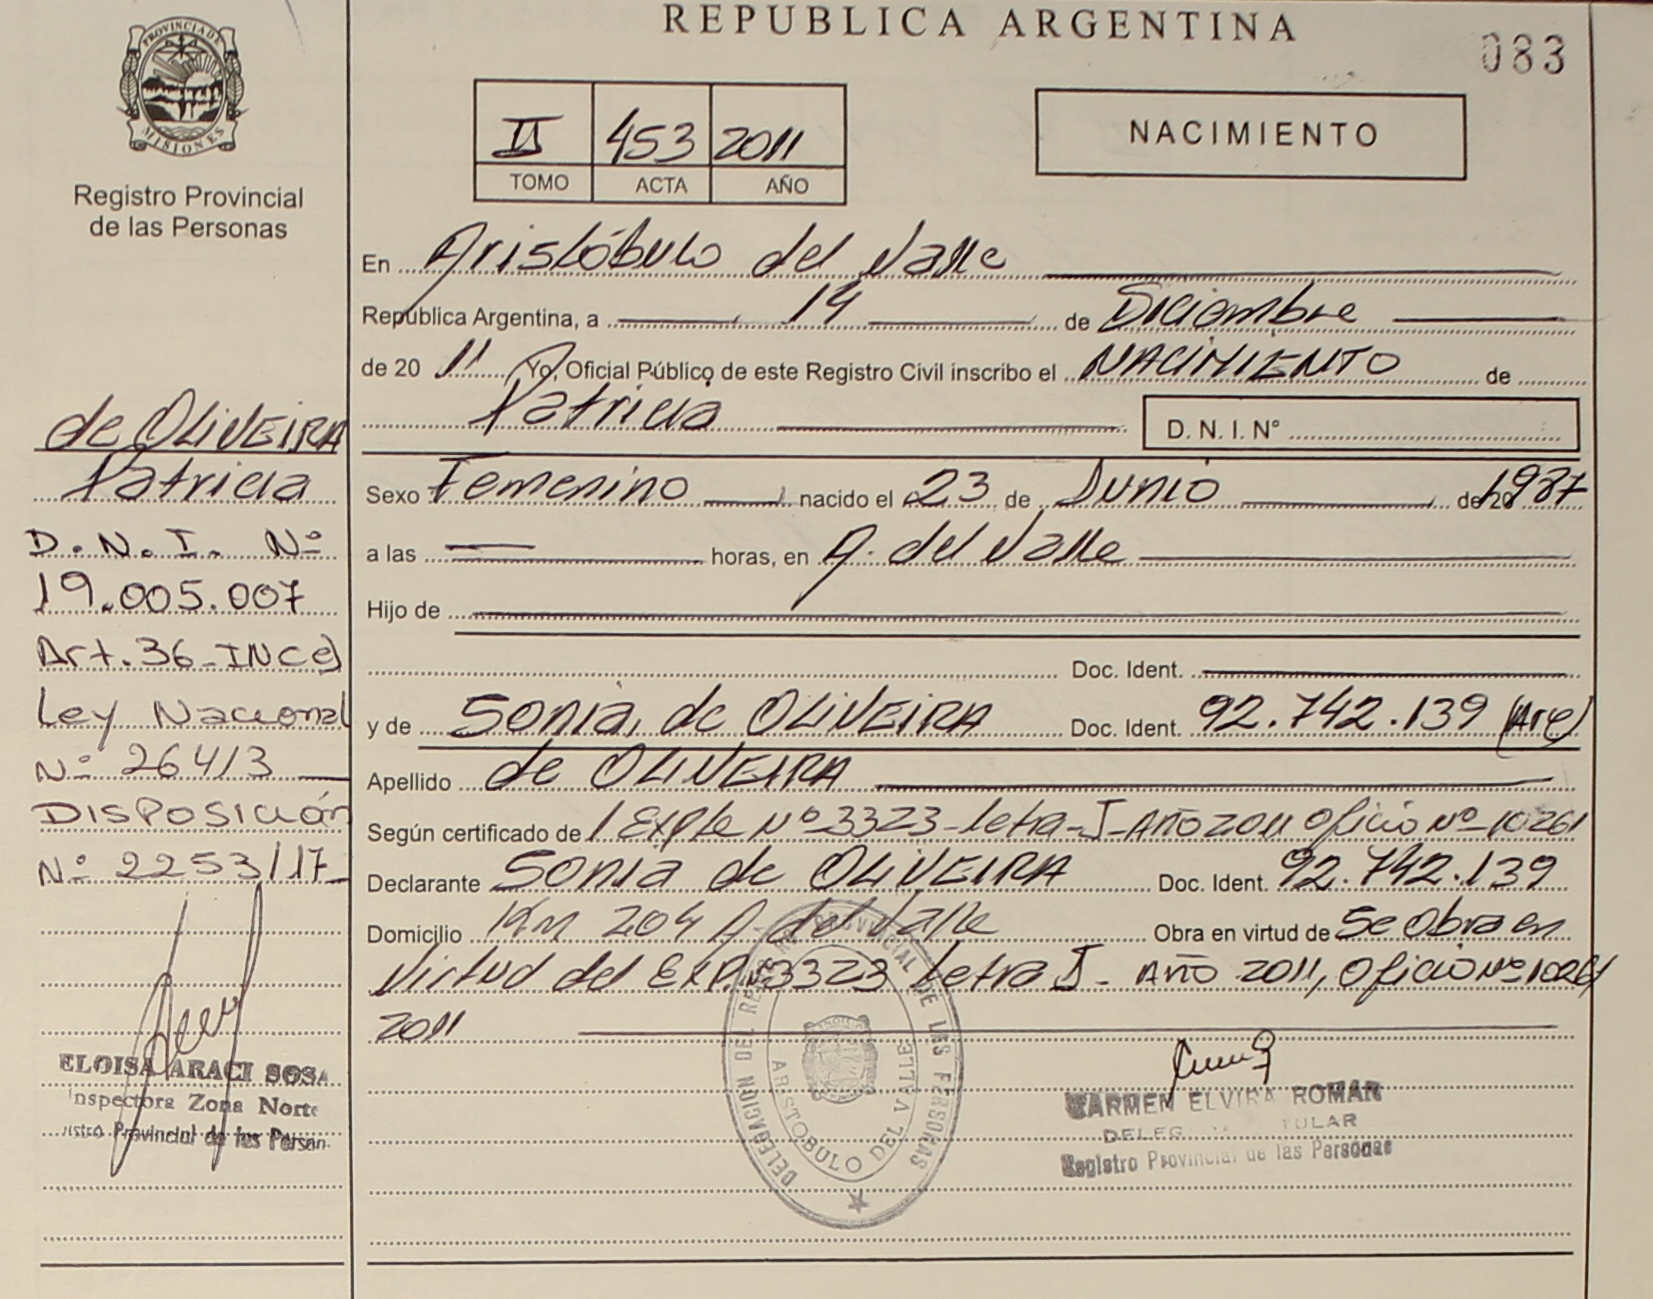 PROVINCIA DE
MISIONES
Registro Provincial
de las Personas
de OLIVEIRA
Patricia
D.N.I. Nº
19.005.007
Art. 36 - INC e)
Ley Nacional
Nº 26413
DISPOSICIÓN
Nº 2253/17
ELOISA ARACI SOSA
Inspectora Zona Norte
Provincial de las Person
REPUBLICA ARGENTINA
083
II 453 2011
TOMO ACTA AÑO
NACIMIENTO
En Aristóbulo del Valle
República Argentina, a 14 de Diciembre
de 20 11 Yo, Oficial Público de este Registro Civil inscribo el NACIMIENTO de
Patricia D.N.I. Nº
Sexo Femenino nacido el 23 de Junio de 20 1987
a las horas, en A. del Valle
Hijo de
Doc. Ident.
y de Sonia, de OLIVEIRA Doc. Ident. 92.742.139 (Arg)
Apellido de OLIVEIRA
Según certificado de Expte Nº 3323 - Letra - J - Año 2011 Oficio Nº 10261
Declarante Sonia de OLIVEIRA Doc. Ident. 92.742.139
Domicilio Km 204 A. del Valle Obra en virtud de Se Obra en
Virtud del EXP. 3323 Letra J - Año 2011, Oficio Nº 10261
2011
DELEGACION DEL REGISTRO PROVINCIAL DE LAS PERSONAS
ARISTOBULO DEL VALLE
CARMEN ELVIRA ROMAN
TULAR
Registro Provincial de las Personas